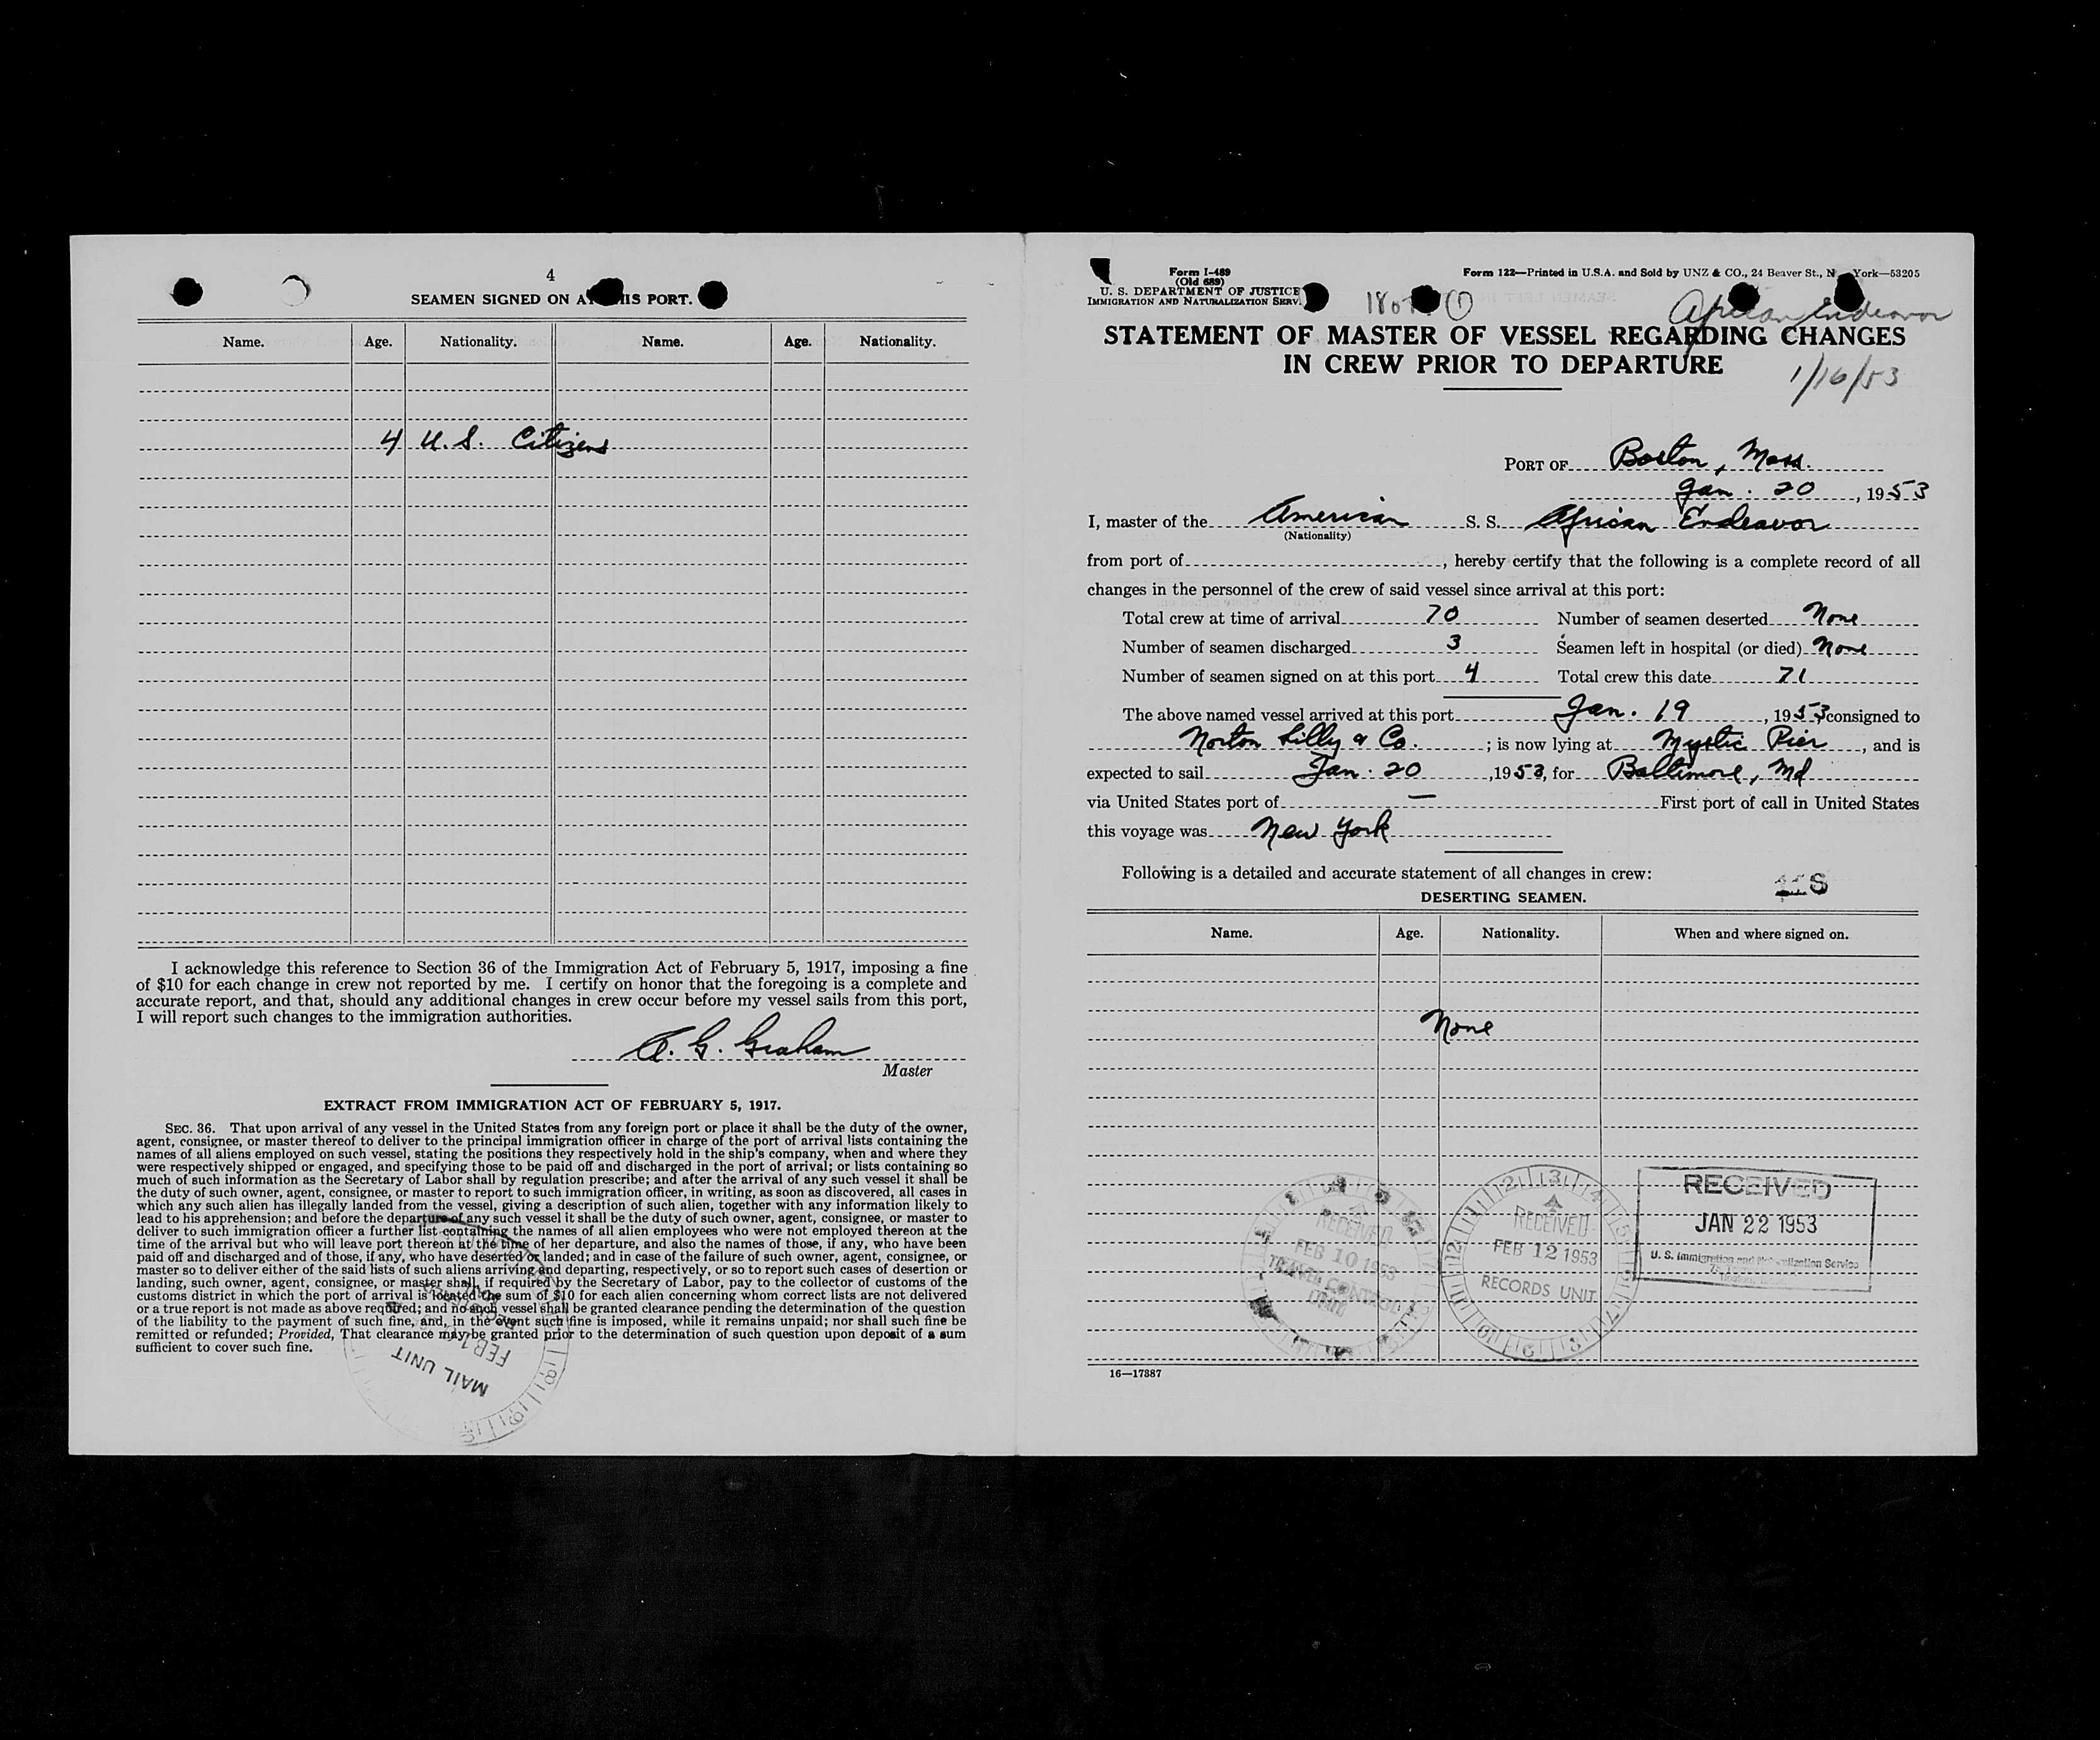 4
SEAMEN SIGNED ON AT THIS PORT.
Name. Age. Nationality. Name. Age. Nationality.
4 U.S. Citizens
I acknowledge this reference to Section 36 of the Immigration Act of February 5, 1917, imposing a fine
of $10 for each change in crew not reported by me. I certify on honor that the foregoing is a complete and
accurate report, and that, should any additional changes in crew occur before my vessel sails from this port,
I will report such changes to the immigration authorities.
A. G. Graham
Master
EXTRACT FROM IMMIGRATION ACT OF FEBRUARY 5, 1917.
SEC. 36. That upon arrival of any vessel in the United States from any foreign port or place it shall be the duty of the owner,
agent, consignee, or master thereof to deliver to the principal immigration officer in charge of the port of arrival lists containing the
names of all aliens employed on such vessel, stating the positions they respectively hold in the ship's company, when and where they
were respectively shipped or engaged, and specifying those to be paid off and discharged in the port of arrival; or lists containing so
much of such information as the Secretary of Labor shall by regulation prescribe; and after the arrival of any such vessel it shall be
the duty of such owner, agent, consignee, or master to report to such immigration officer, in writing, as soon as discovered, all cases in
which any such alien has illegally landed from the vessel, giving a description of such alien, together with any information likely to
lead to his apprehension; and before the departure of any such vessel it shall be the duty of such owner, agent, consignee, or master to
deliver to such immigration officer a further list containing the names of all alien employees who were not employed thereon at the
time of the arrival but who will leave port thereon at the time of her departure, and also the names of those, if any, who have been
paid off and discharged and of those, if any, who have deserted or landed; and in case of the failure of such owner, agent, consignee, or
master so to deliver either of the said lists of such aliens arriving and departing, respectively, or so to report such cases of desertion or
landing, such owner, agent, consignee, or master shall, if required by the Secretary of Labor, pay to the collector of customs of the
customs district in which the port of arrival is located the sum of $10 for each alien concerning whom correct lists are not delivered
or a true report is not made as above required; and no such vessel shall be granted clearance pending the determination of the question
of the liability to the payment of such fine, and, in the event such fine is imposed, while it remains unpaid; nor shall such fine be
remitted or refunded; Provided, That clearance may be granted prior to the determination of such question upon deposit of a sum
sufficient to cover such fine.
RECEIVED
FEB 1
MAIL UNIT
Form I-489
(Old 689)
U. S. DEPARTMENT OF JUSTICE
IMMIGRATION AND NATURALIZATION SERV.
Form 122—Printed in U.S.A. and Sold by UNZ & CO., 24 Beaver St., N York—53205
African Endeavor
STATEMENT OF MASTER OF VESSEL REGARDING CHANGES
IN CREW PRIOR TO DEPARTURE
1/16/53
PORT OF Boston, Mass.
Jan. 20, 1953
I, master of the American S. S. African Endeavor
(Nationality)
from port of , hereby certify that the following is a complete record of all
changes in the personnel of the crew of said vessel since arrival at this port:
Total crew at time of arrival 70 Number of seamen deserted None
Number of seamen discharged 3 Seamen left in hospital (or died) None
Number of seamen signed on at this port 4 Total crew this date 71
The above named vessel arrived at this port Jan. 19, 1953, consigned to
Norton Lilly & Co. ; is now lying at Mystic Pier, and is
expected to sail Jan. 20, 1953, for Baltimore, Md
via United States port of — First port of call in United States
this voyage was New York
Following is a detailed and accurate statement of all changes in crew:
DESERTING SEAMEN.
Name. Age. Nationality. When and where signed on.
None
RECEIVED
FEB 10 1953
TRAVEL CONTROL
UNIT
RECEIVED
FEB 12 1953
RECORDS UNIT
RECEIVED
JAN 22 1953
U. S. Immigration and Naturalization Service
16—17887